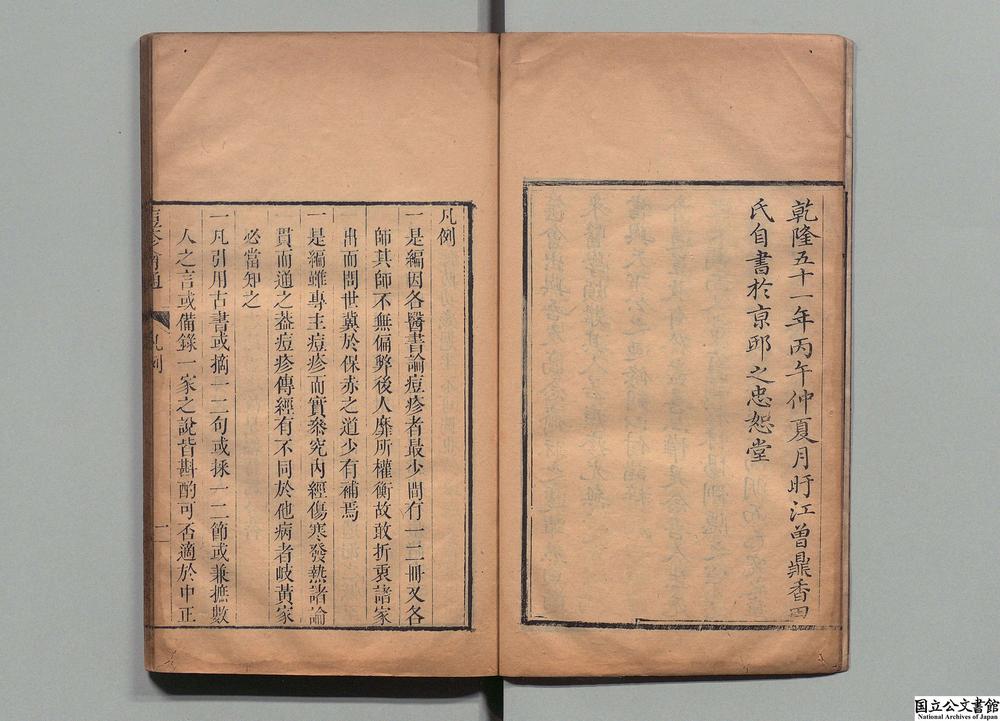 乾隆五十一年丙午仲夏月盱江曾鼎香田
氏自書於京邸之忠恕堂
凡例
一是編因各醫書論痘疹者最少間有一二冊又各
師其師不無偏弊後人靡所權衡故敢折衷諸家
出而問世冀於保赤之道少有補焉
一是編雖專主痘疹而實叅究内經傷寒發熱諸論
貫而通之葢痘疹傳經有不同於他病者岐黃家
必當知之
一凡引用古書或摘一二句或採一二節或兼摭數
人之言或備錄一家之說皆斟酌可否適於中正
痘疹會通
凡例
一
国立公文書館
National Archives of Japan